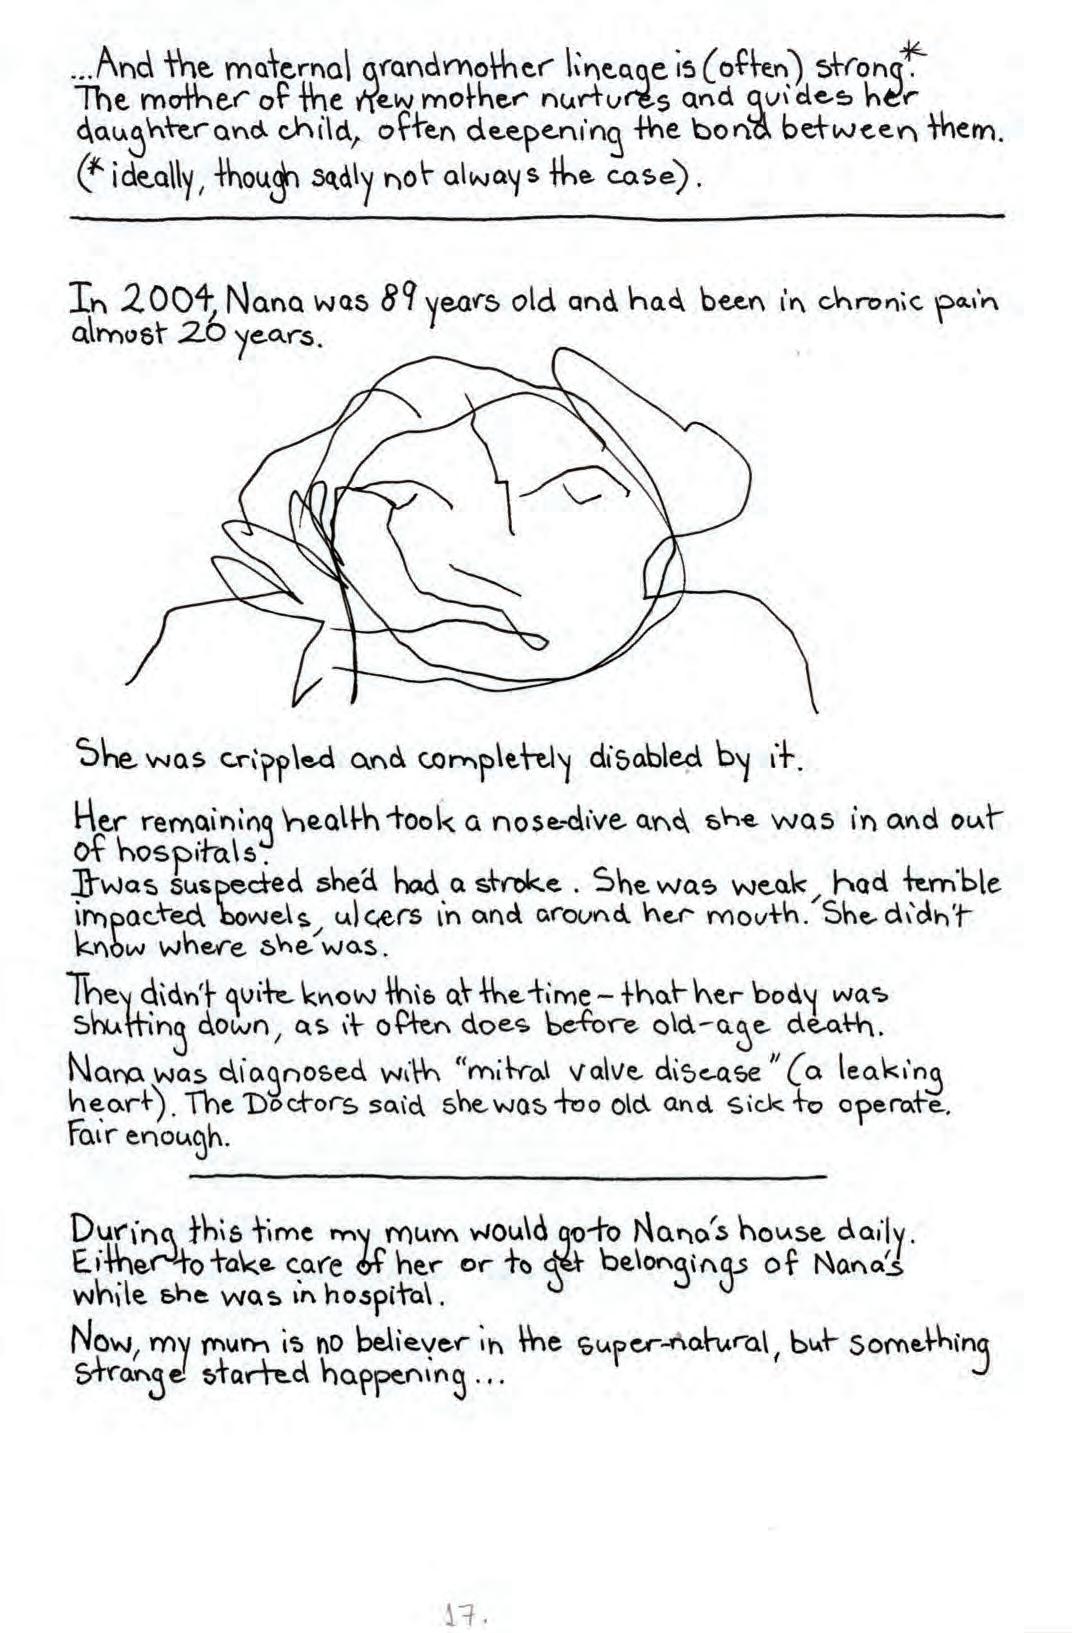 ...And the maternal grandmother lineage is (often) strong*.
The mother of the new mother nurtures and guides her
daughter and child, often deepening the bond between them.
(* ideally, though sadly not always the case).
In 2004, Nana was 89 years old and had been in chronic pain
almost 20 years.
She was crippled and completely disabled by it.
Her remaining health took a nose-dive and she was in and out
of hospitals.
It was suspected she'd had a stroke. She was weak, had terrible
impacted bowels, ulcers in and around her mouth. She didn't
know where she was.
They didn't quite know this at the time - that her body was
shutting down, as it often does before old-age death.
Nana was diagnosed with "mitral valve disease" (a leaking
heart). The Doctors said she was too old and sick to operate.
Fair enough.
During this time my mum would go to Nana's house daily.
Either to take care of her or to get belongings of Nana's
while she was in hospital.
Now, my mum is no believer in the super-natural, but something
strange started happening...
17.